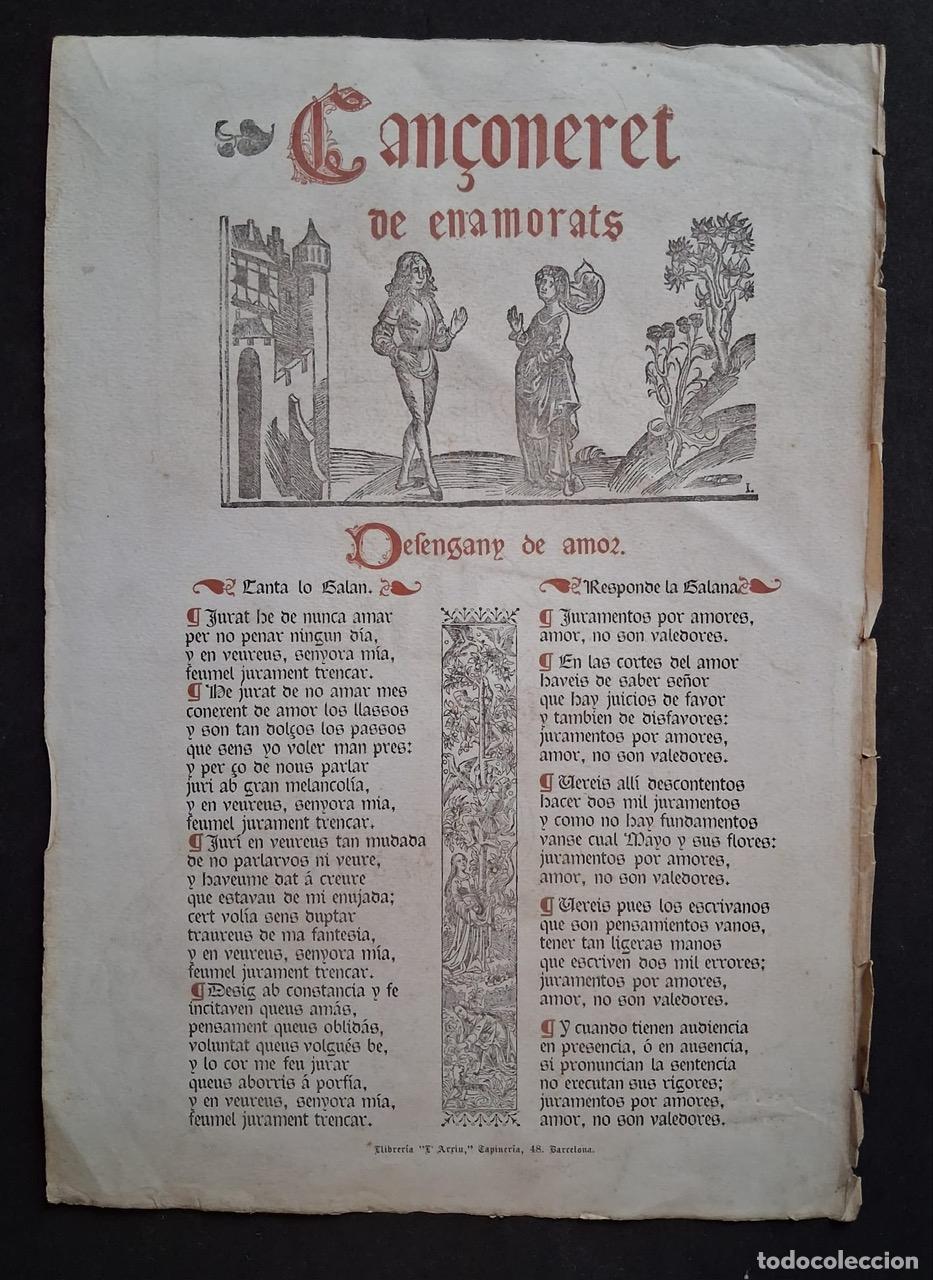 Cançoneret
de enamorats
L
Desengany de amor.
Canta lo Galan.
¶ Jurat he de nunca amar
per no penar ningun día,
y en veureus, senyora mía,
feumel jurament trencar.
¶ He jurat de no amar mes
conexent de amor los llassos
y son tan dolços los passos
que sens yo voler man pres:
y per ço de nous parlar
juri ab gran melancolía,
y en veureus, senyora mia,
feumel jurament trencar.
¶ Jurí en veureus tan mudada
de no parlarvos ni veure,
y haveume dat á creure
que estavau de mi enujada;
cert volía sens duptar
traureus de ma fantesía,
y en veureus, senyora mía,
feumel jurament trencar.
¶ Desig ab constancia y fe
incitaven queus amás,
pensament queus oblidás,
voluntat queus volgués be,
y lo cor me feu jurar
queus aborris á porfía,
y en veureus, senyora mia,
feumel jurament trencar.
Responde la Galana
¶ Juramentos por amores,
amor, no son valedores.
¶ En las cortes del amor
haveis de saber señor
que hay juicios de favor
y tambien de disfavores:
juramentos por amores,
amor, no son valedores.
¶ Vereis allí descontentos
hacer dos mil juramentos
y como no hay fundamentos
vanse cual Mayo y sus flores:
juramentos por amores,
amor, no son valedores.
¶ Vereis pues los escrivanos
que son pensamientos vanos,
tener tan ligeras manos
que escriven dos mil errores;
juramentos por amores,
amor, no son valedores.
¶ Y cuando tienen audiencia
en presencia, ó en ausencia,
si pronuncian la sentencia
no executan sus rigores;
juramentos por amores,
amor, no son valedores.
Llibrería "L' Arxiu," Tapinería, 48. Barcelona.
todocoleccion